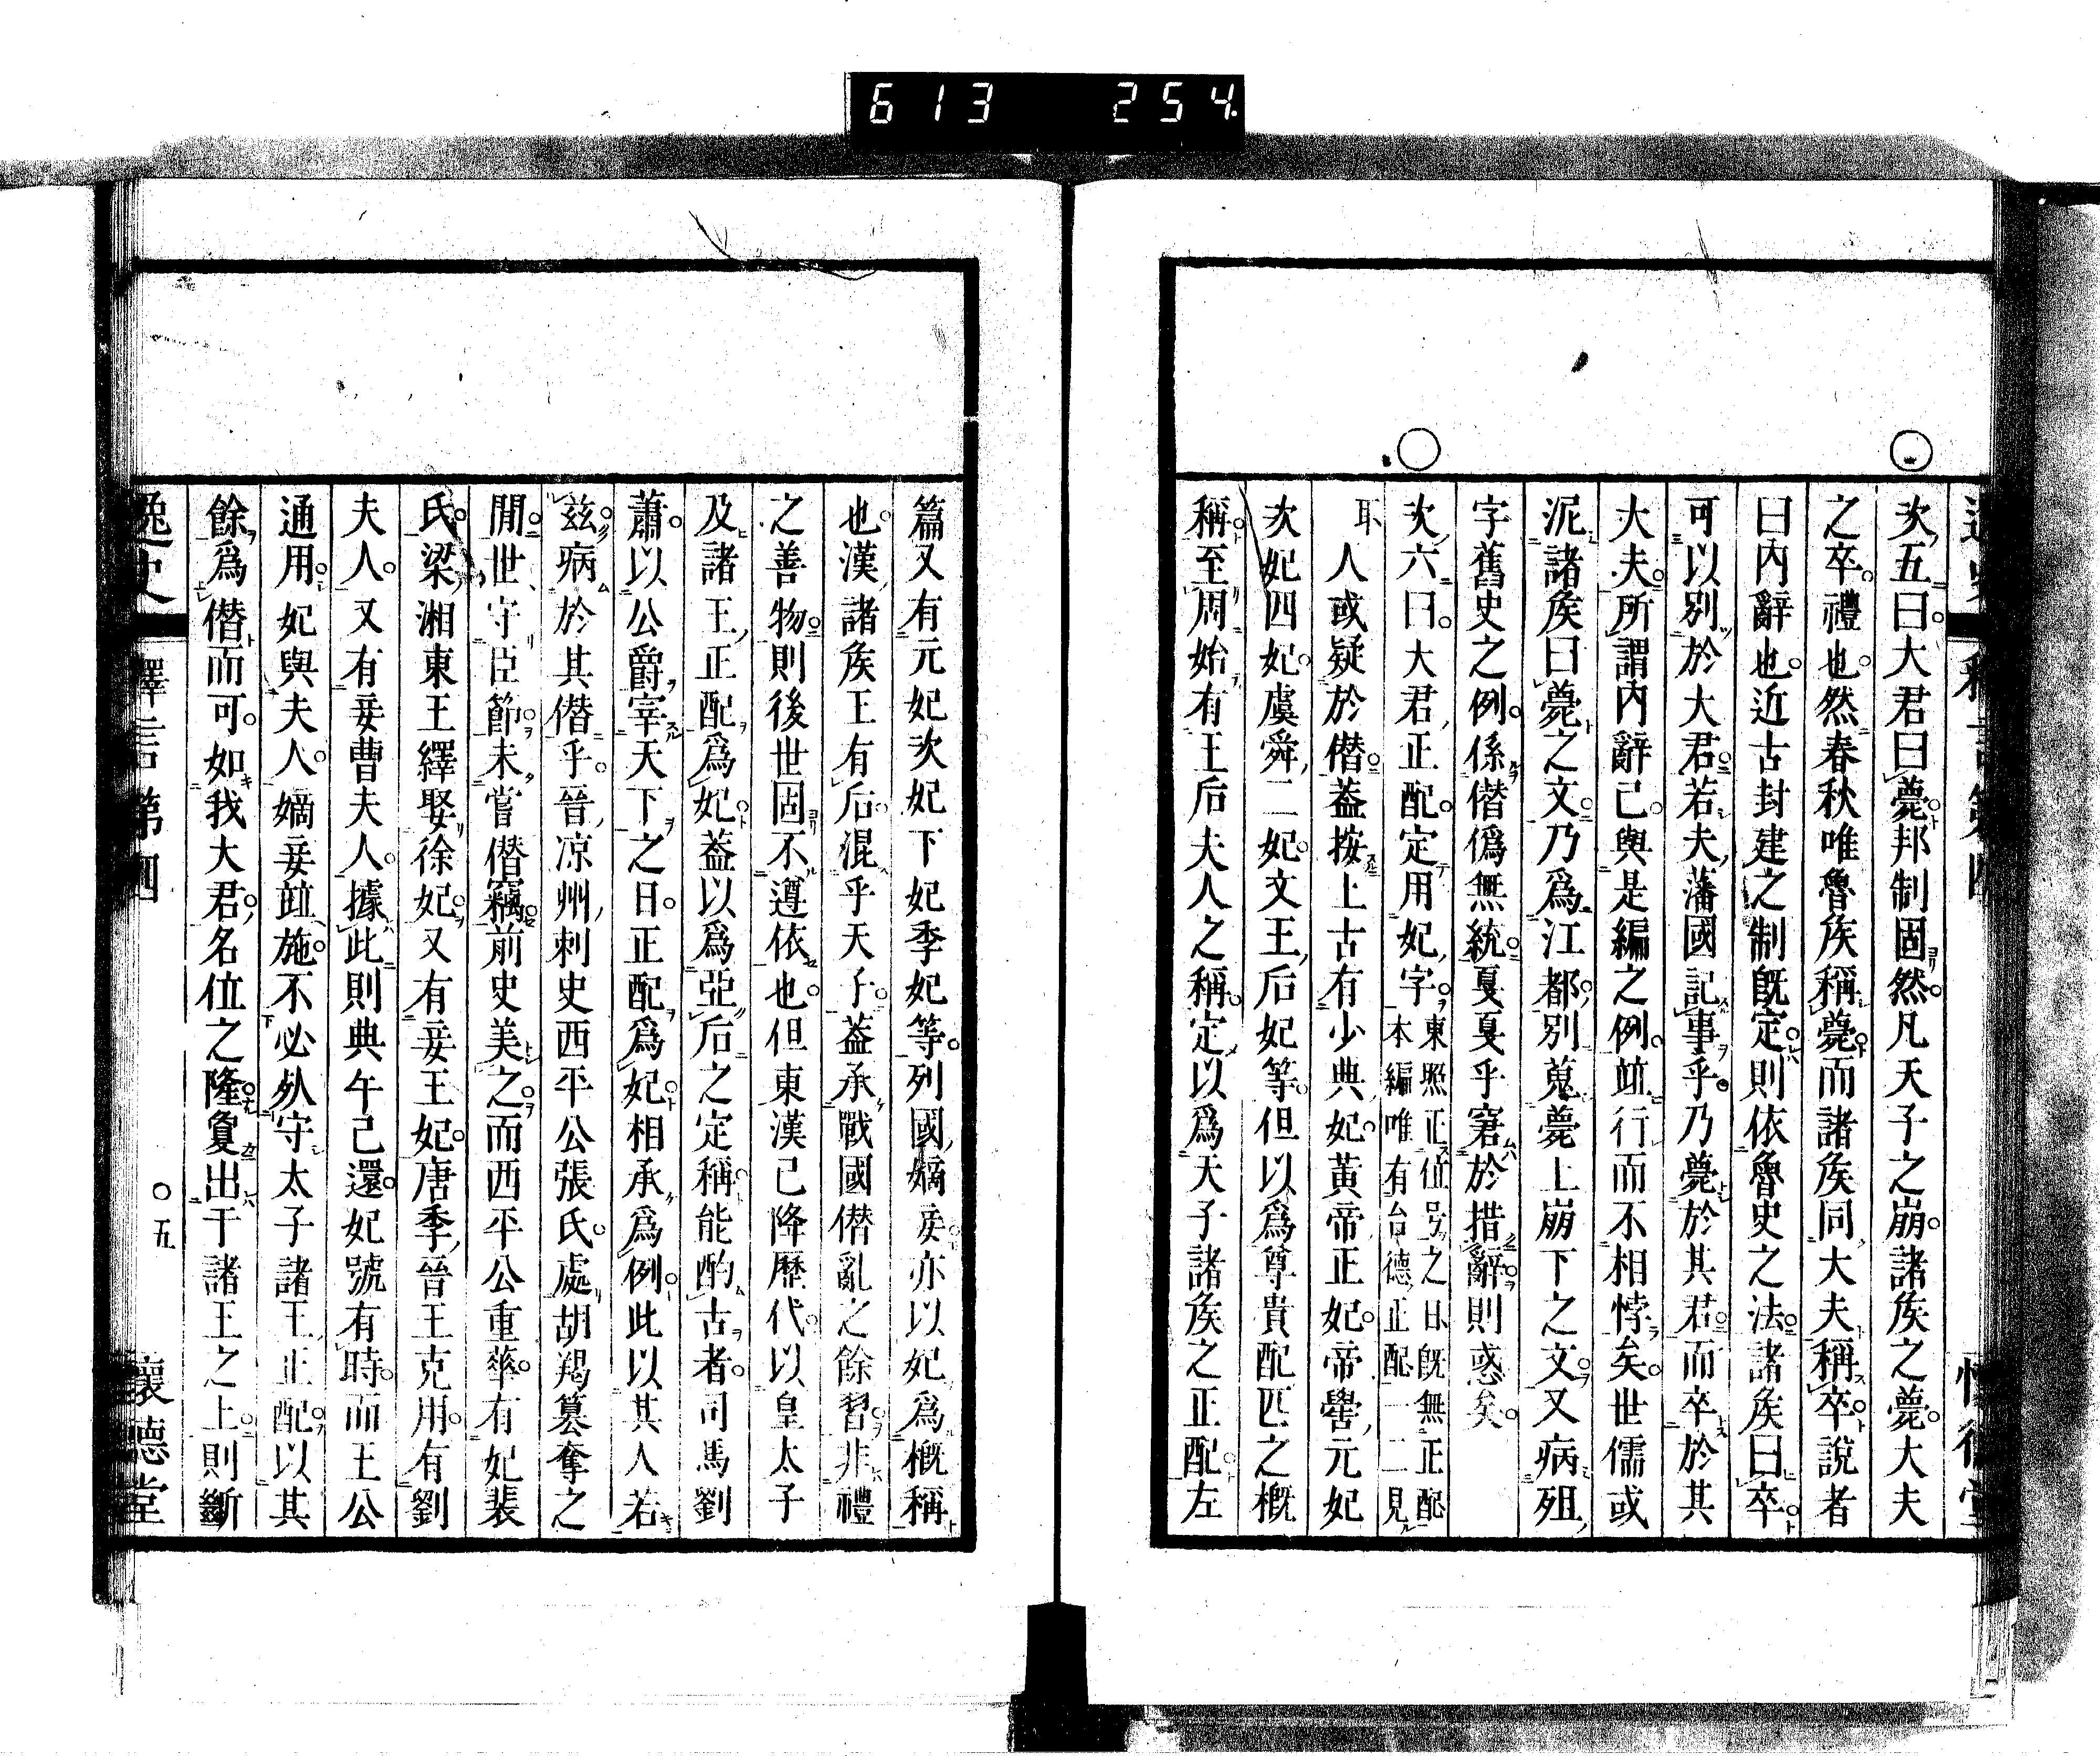 613 254
次五曰大君曰薨邦制固然凡天子之崩諸矦之薨大夫
之卒禮也然春秋唯魯矦稱薨而諸矦同大夫稱卒說者
曰內辭也近古封建之制旣定則依魯史之法諸矦曰卒
可以別於大君若夫藩國記事乎乃薨於其君而卒於其
大夫所謂內辭已與是編之例竝行而不相悖矣世儒或
泥諸矦曰薨之文乃爲江都別蒐薨上崩下之文又病殂
字舊史之例係僭僞無統戛戛乎窘於措辭則惑矣
次六曰大君正配定用妃字東照正位号之日旣無正配
本編唯有台德正配一二見
耳人或疑於僭葢按上古有少典妃黃帝正妃帝嚳元妃
次妃四妃虞舜二妃文王后妃等但以爲尊貴配匹之概
稱至周始有王后夫人之稱定以爲天子諸矦之正配左
篇又有元妃次妃下妃季妃等列國嫡妾亦以妃爲概稱
也漢諸矦王有后混乎天子葢承戰國僭亂之餘習非禮
之善物則後世固不遵依也但東漢已降歷代以皇太子
及諸王正配爲妃葢以爲亞后之定稱能酌古者司馬劉
蕭以公爵宰天下之日正配爲妃相承爲例此以其人若
茲病於其僭乎晉凉州刺史西平公張氏處胡羯簒奪之
閒世守臣節未嘗僭竊前史美之而西平公重華有妃裴
氏梁湘東王繹娶徐妃又有妾王妃唐季晉王克用有劉
夫人又有妾曹夫人據此則典午已還妃號有時而王公
通用妃與夫人嫡妾竝施不必㕥守太子諸王正配以其
餘爲僭而可如我大君名位之隆敻出于諸王之上則斷
逸史 釋言第四 ○五 懷德堂